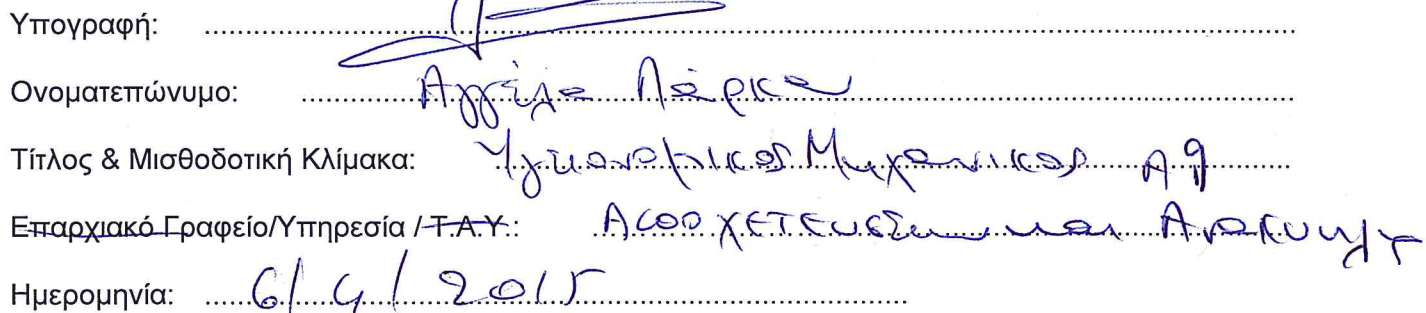 Υπογραφή:
Ονοματεπώνυμο: Αγγέλα Λάρκου
Τίτλος & Μισθοδοτική Κλίμακα: Υγειονομικός Μηχανικός Α9
Επαρχιακό Γραφείο/Υπηρεσία /Τ.Α.Υ.: και
Ημερομηνία: 6/4/2015